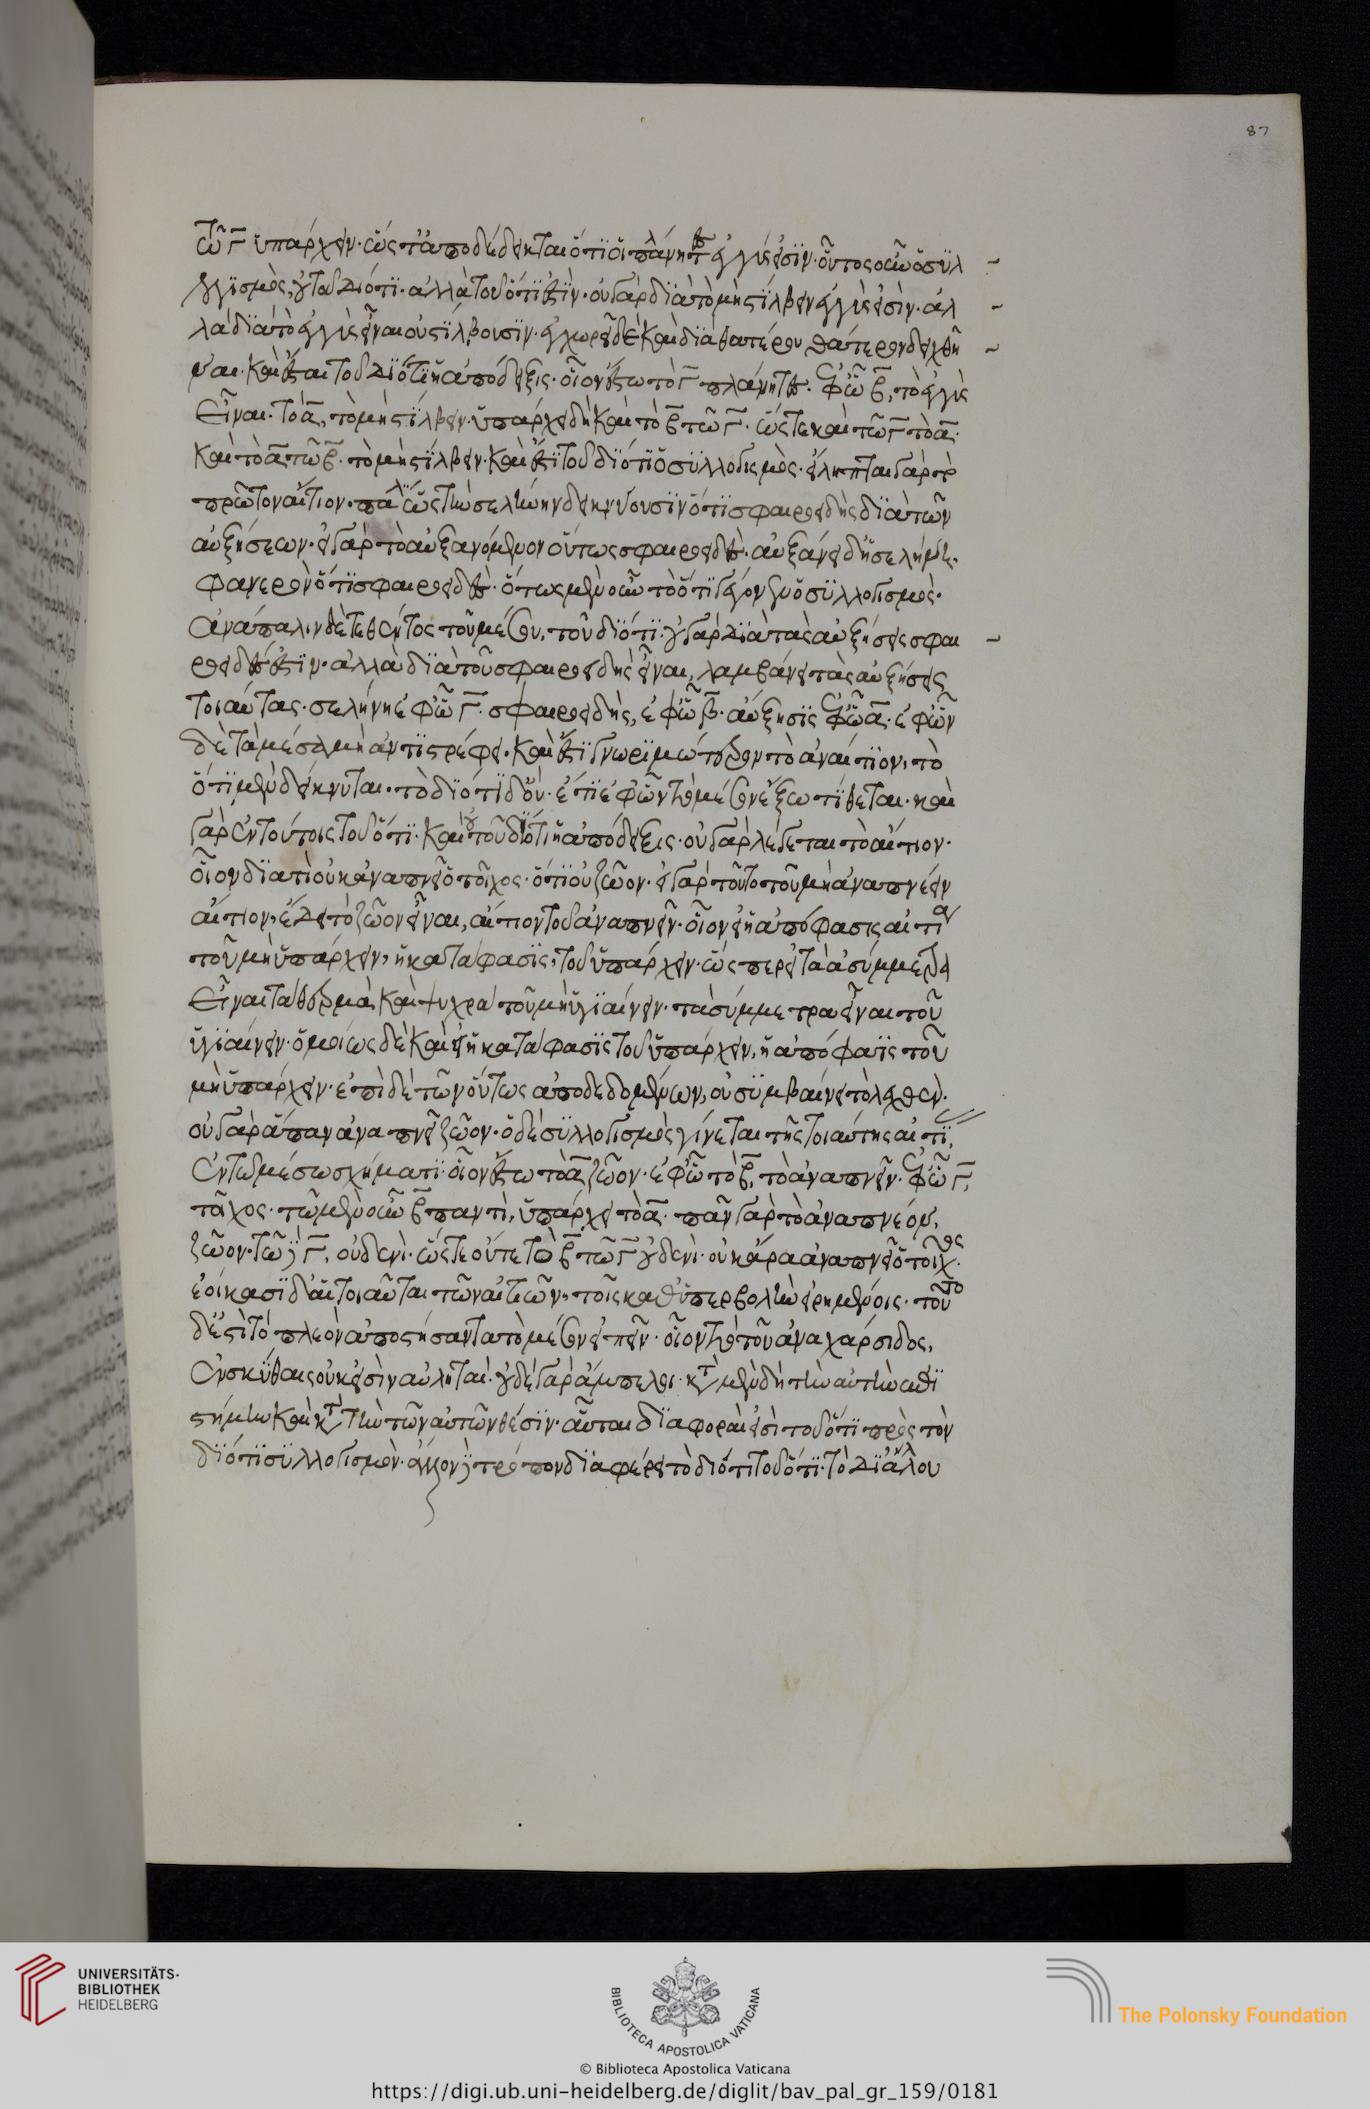 τῷ Γ ὑπάρχειν· ὥστ' ἀποδέδεικται ὅτι οἱ πλάνητες ἐγγύς εἰσιν· οὗτος οὖν ὁ συλ
λογισμὸς, οὐ τοῦ διότι· ἀλλὰ τοῦ ὅτι ἐστίν· οὐ γὰρ διὰ τὸ μὴ στίλβειν ἐγγύς εἰσὶν· ἀλ
λὰ διὰ τὸ ἐγγὺς εἶναι οὐ στίλβουσιν· ἐγχωρεῖ δὲ καὶ διὰ θατέρου θάτερον δειχθῆ
ναι· καὶ ἔσται τοῦ διότι ἡ ἀπόδειξις· οἷον ἔστω τὸ Γ πλάνητες· ἐφ' ᾧ Β, τὸ ἐγγὺς
εἶναι· τὸ Α, τὸ μὴ στίλβειν· ὑπάρχει δὴ καὶ τὸ Β τῷ Γ· ὥστε καὶ τῷ Γ τὸ Α·
καὶ τὸ Α τῷ Β· τὸ μὴ στίλβειν· καὶ ἔστι τοῦ διότι ὁ συλλογισμὸς· εἴληπται γὰρ τὸ
πρῶτον αἴτιον· πάλιν ὡς τὴν σελήνην δεικνύουσιν ὅτι σφαιροειδὴς διὰ τῶν
αὐξήσεων· εἰ γὰρ τὸ αὐξανόμενον οὕτως σφαιροειδές· αὐξάνει δ' ἡ σελήνη·
φανερὸν ὅτι σφαιροειδής· οὕτως μὲν οὖν τοῦ ὅτι γέγονεν ὁ συλλογισμός·
ἀνάπαλιν δὲ τεθέντος τοῦ μέσου, τοῦ διότι· οὐ γὰρ διὰ τὰς αὐξήσεις σφαι
ροειδής ἐστιν· ἀλλὰ διὰ τὸ σφαιροειδὴς εἶναι, λαμβάνει τὰς αὐξήσεις
τοιαύτας· σελήνη ἐφ' ᾧ Γ· σφαιροειδὴς, ἐφ' ᾧ Β· αὔξησις ἐφ' ᾧ Α· ἐφ' ὧν
δὲ τὰ μέσα μὴ ἀντιστρέφει· καὶ ἔστι γνωριμώτερον τὸ ἀναίτιον, τὸ
ὅτι μὲν δείκνυται· τὸ διότι δ' οὔ· ἔτι ἐφ' ὧν τὸ μέσον ἔξω τίθεται· καὶ
γὰρ ἐν τούτοις τοῦ ὅτι· καὶ οὐ τοῦ διότι ἡ ἀπόδειξις· οὐ γὰρ λέγεται τὸ αἴτιον·
οἷον διὰ τί οὐκ ἀναπνεῖ ὁ τοῖχος· ὅτι οὐ ζῷον· εἰ γὰρ τοῦτο τοῦ μὴ ἀναπνέειν
αἴτιον, ἔδει τὸ ζῷον εἶναι, αἴτιον τοῦ ἀναπνεῖν· οἷον εἰ ἡ ἀπόφασις αἰτία
τοῦ μὴ ὑπάρχειν, ἡ κατάφασις, τοῦ ὑπάρχειν· ὥσπερ εἰ τὸ ἀσύμμετρα
εἶναι τὰ θερμὰ καὶ ψυχρὰ τοῦ μὴ ὑγιαίνειν· τὸ σύμμετρα εἶναι τοῦ
ὑγιαίνειν· ὁμοίως δὲ καὶ εἰ ἡ κατάφασις τοῦ ὑπάρχειν, ἡ ἀπόφασις τοῦ
μὴ ὑπάρχειν· ἐπὶ δὲ τῶν οὕτως ἀποδεδομένων, οὐ συμβαίνει τὸ λεχθέν·
οὐ γὰρ ἅπαν ἀναπνεῖ ζῷον· ὁ δὲ συλλογισμὸς γίνεται τῆς τοιαύτης αἰτί,
ἐν τῷ μέσῳ σχήματι· οἷον ἔστω τὸ Α ζῷον· ἐφ' ᾧ τὸ Β, τὸ ἀναπνεῖν· ἐφ' ᾧ Γ,
τοῖχος· τῷ μὲν οὖν Β παντὶ, ὑπάρχει τὸ Α· πᾶν γὰρ τὸ ἀναπνέον,
ζῷον· τῷ δὲ Γ, οὐδενί· ὥστε οὐδὲ τὸ Β τῷ Γ οὐδενί· οὐκ ἄρα ἀναπνεῖ ὁ τοῖχος·
ἐοίκασι δ' αἱ τοιαῦται τῶν αἰτιῶν, τοῖς καθ' ὑπερβολὴν εἰρημένοις· τοῦτο
δ' ἐστὶ τὸ πλέον ἀποστήσαντα τὸ μέσον εἰπεῖν· οἷον τὸ τοῦ ἀναχάρσιδος,
ἐν σκύθαις οὐκ εἰσὶν αὐληταί· οὐδὲ γὰρ ἄμπελοι· κατὰ μὲν δὴ τὴν αὐτὴν ἐπι
στήμην καὶ κατὰ τὴν τῶν αὐτῶν θέσιν· αὗται διαφοραί εἰσι τοῦ ὅτι πρὸς τὸν
διότι συλλογισμόν· ἄλλον δὲ τρόπον διαφέρει τὸ διότι τοῦ ὅτι· τῷ δι' ἄλλου
87
UNIVERSITÄTS-
BIBLIOTHEK
HEIDELBERG
BIBLIOTECA APOSTOLICA VATICANA
The Polonsky Foundation
© Biblioteca Apostolica Vaticana
https://digi.ub.uni-heidelberg.de/diglit/bav_pal_gr_159/0181